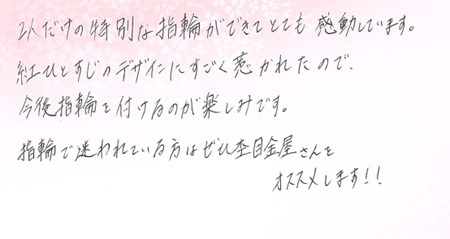 2人だけの特別な指輪ができてとても感動しています。
紅ひとすじのデザインにすごく惹かれたので、
今後指輪を付けるのが楽しみです。
指輪で迷われている方はぜひ杢目金屋さんを
オススメします!!